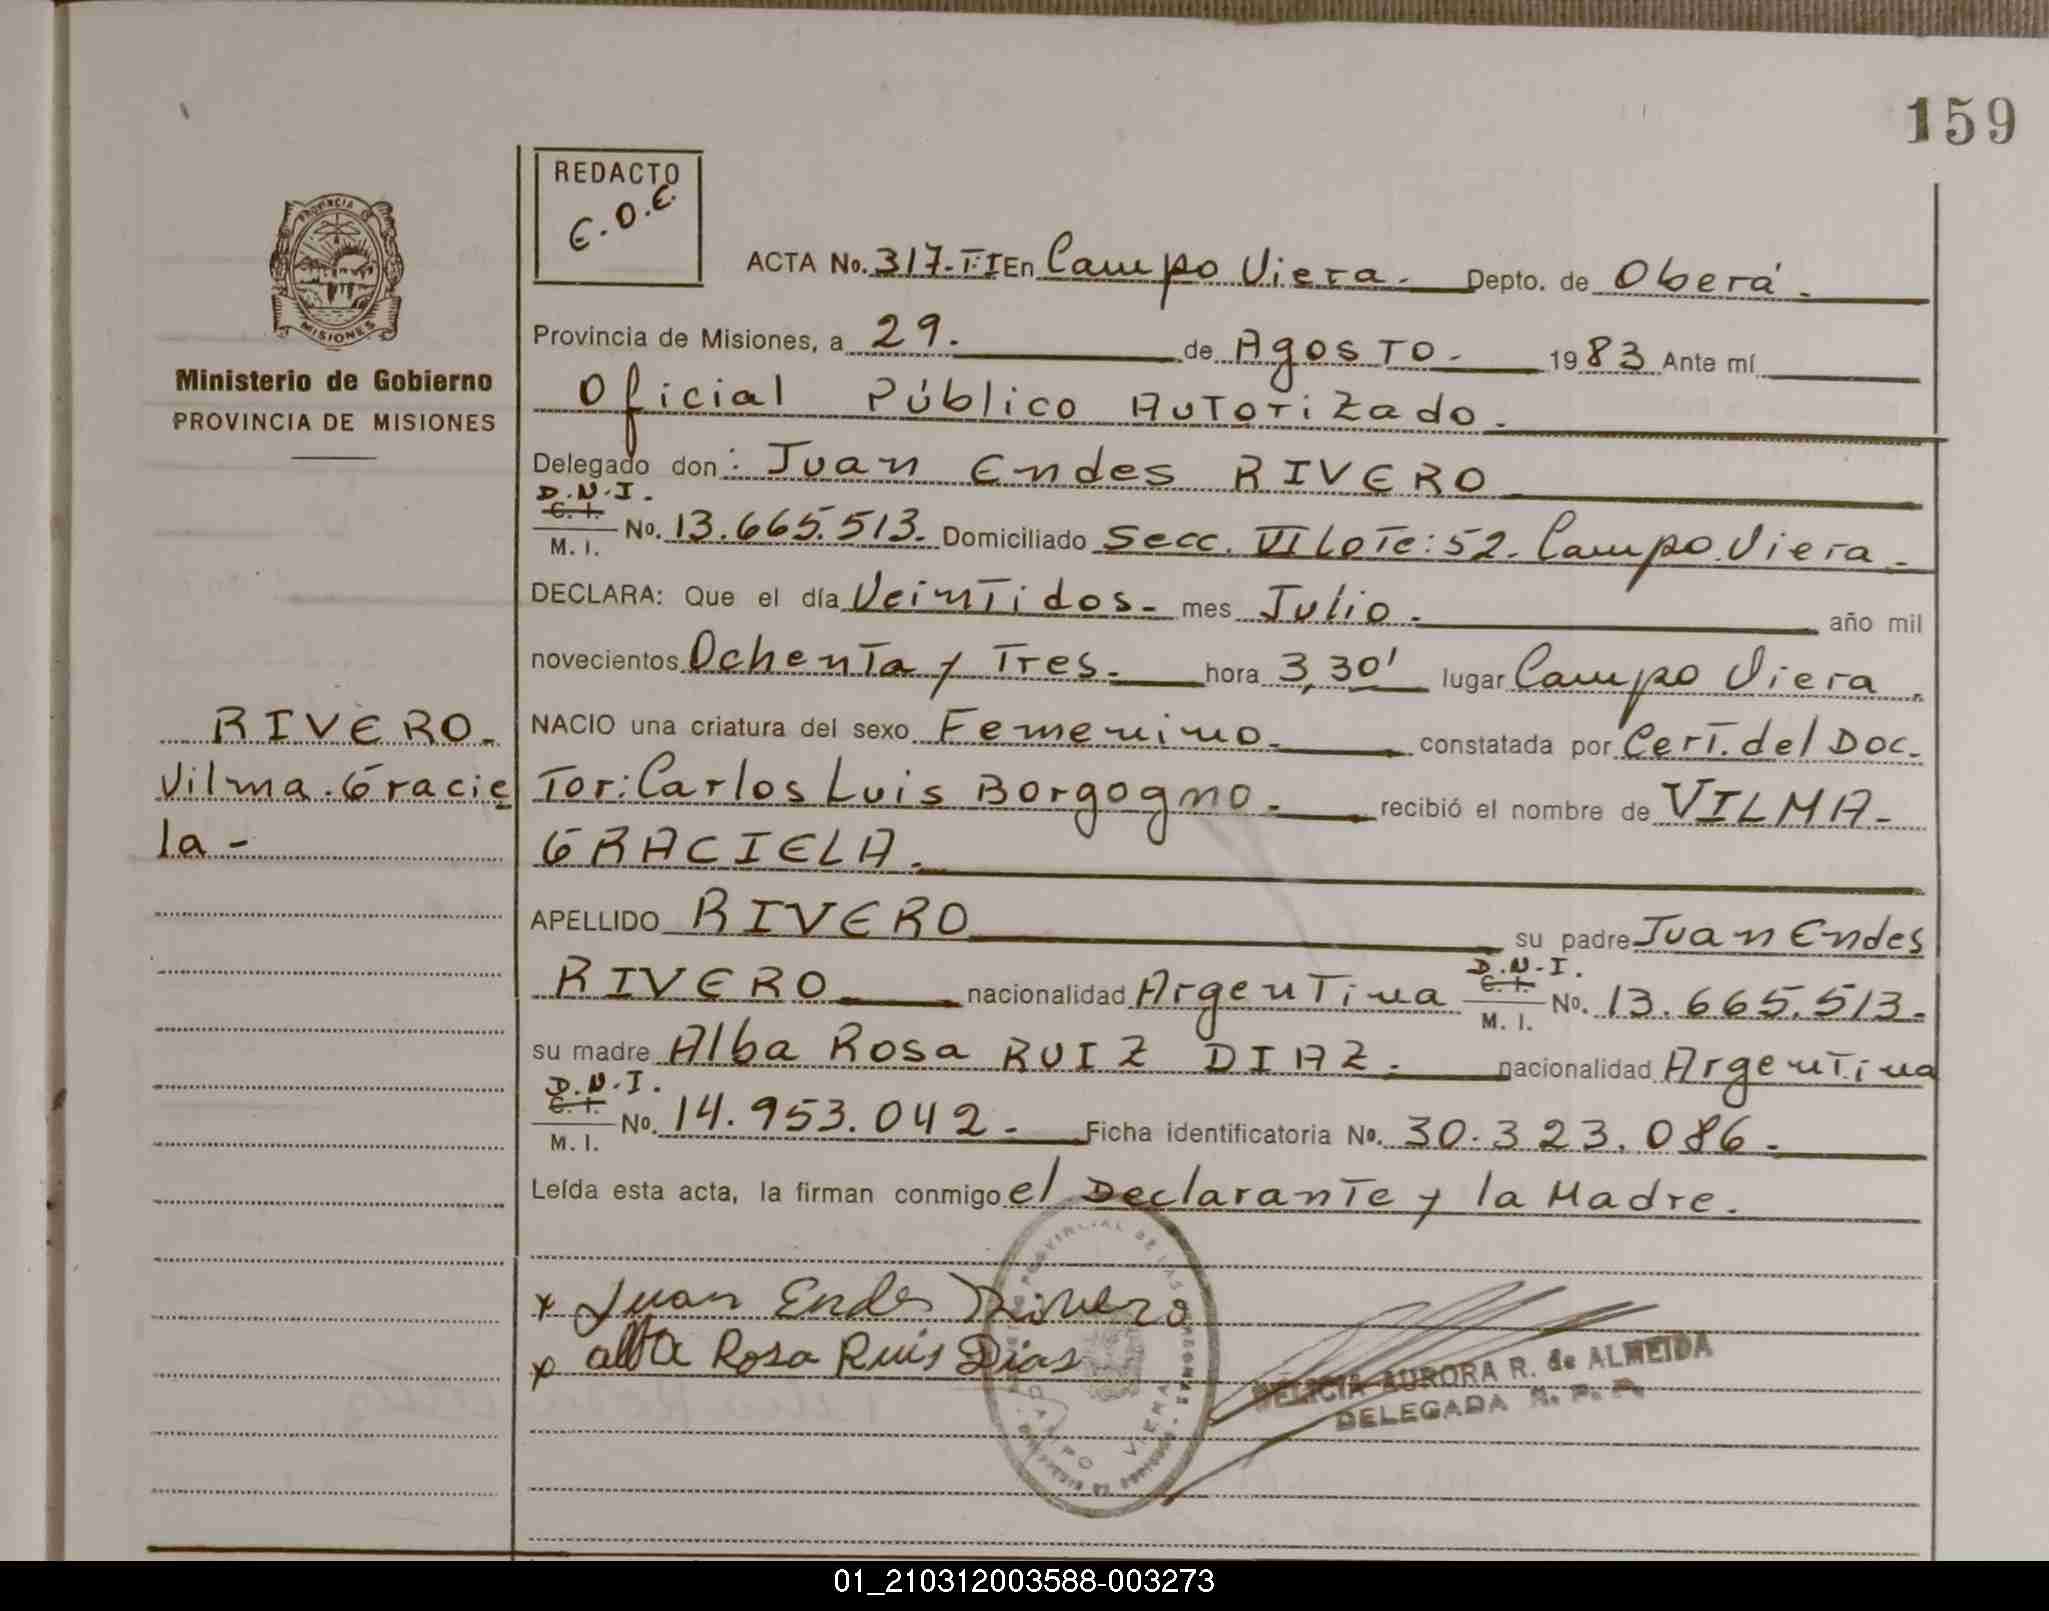 159
REDACTO
E.O.E.
PROVINCIA
MISIONES
Ministerio de Gobierno
PROVINCIA DE MISIONES
ACTA No. 317-T:I En Campo Viera. Depto. de Oberá.
Provincia de Misiones, a 29. de Agosto. 1983 Ante mí
Oficial Público Autorizado.
Delegado don: Juan Endes RIVERO
D.N.I.
C. I.
M. I. No. 13.665.513. Domiciliado Secc. VI Lote: 52. Campo Viera.
DECLARA: Que el día Veintidos. mes Julio. año mil
novecientos Ochenta y Tres. hora 3,30' lugar Campo Viera.
NACIO una criatura del sexo Femenino. constatada por Cert. del Doc-
tor: Carlos Luis Borgogno. recibió el nombre de VILMA
GRACIELA.
RIVERO.
Vilma Gracie
la -
APELLIDO RIVERO su padre Juan Endes
RIVERO nacionalidad Argentina D.N.I. C. I. M. I. No. 13.665.513.
su madre Alba Rosa RUIZ DIAZ. nacionalidad Argentina
D.N.I.
C. I.
M. I. No. 14.953.042. Ficha identificatoria No. 30.323.086.
Leída esta acta, la firman conmigo el Declarante y la Madre.
x Juan Endes Rivero
x alba Rosa Ruis Dias
PROVINCIAL DE LAS PERSONAS
CAMPO VIERA
FELICIA AURORA R. de ALMEIDA
DELEGADA R. P. P.
01_210312003588-003273